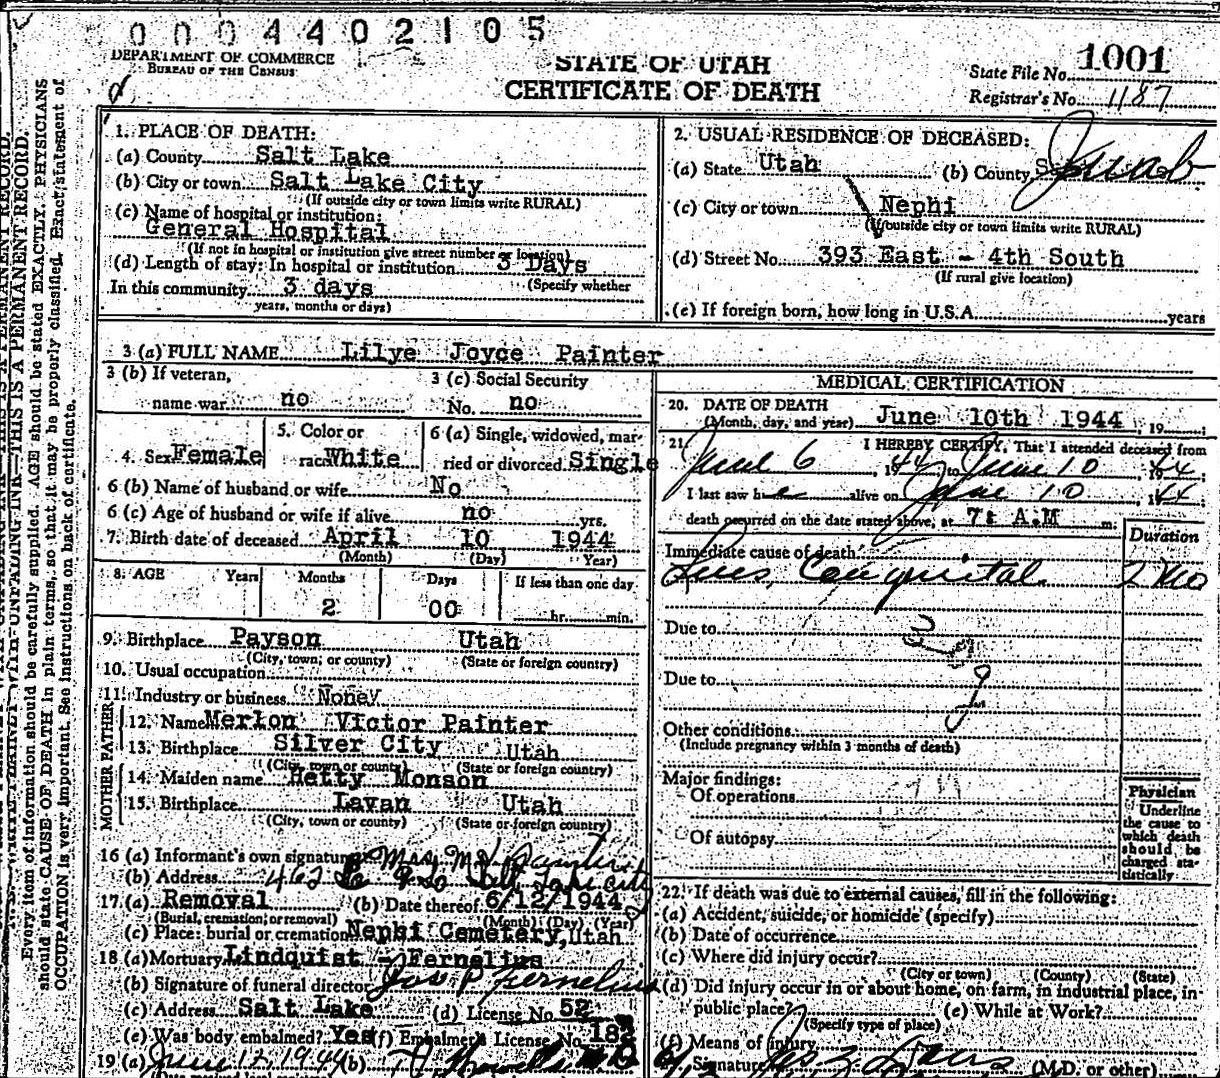 0004402105
DEPARTMENT OF COMMERCE
BUREAU OF THE CENSUS
STATE OF UTAH
CERTIFICATE OF DEATH
State File No. 1001
Registrar's No. 1187
1. PLACE OF DEATH:
(a) County Salt Lake
(b) City or town Salt Lake City
(If outside city or town limits write RURAL)
(c) Name of hospital or institution:
General Hospital
(If not in hospital or institution give street number or location)
(d) Length of stay: In hospital or institution 3 Days
(Specify whether
In this community 3 days
years, months or days)
2. USUAL RESIDENCE OF DECEASED:
(a) State Utah (b) County Juab
(c) City or town Nephi
(If outside city or town limits write RURAL)
(d) Street No. 393 East - 4th South
(If rural give location)
(e) If foreign born, how long in U.S.A. years
3 (a) FULL NAME Lilye Joyce Painter
3 (b) If veteran,
name war no
3 (c) Social Security
No. no
4. Sex Female
5. Color or
race White
6 (a) Single, widowed, mar-
ried or divorced Single
6 (b) Name of husband or wife No
6 (c) Age of husband or wife if alive no yrs.
7. Birth date of deceased April 10 1944
(Month) (Day) (Year)
8. AGE Years Months Days If less than one day
2 00 hr. min.
9. Birthplace Payson Utah
(City, town, or county) (State or foreign country)
10. Usual occupation
11. Industry or business None
FATHER
12. Name Merlon Victor Painter
13. Birthplace Silver City Utah
(City, town or county) (State or foreign country)
MOTHER
14. Maiden name Hetty Monson
15. Birthplace Lavan Utah
(City, town or county) (State or foreign country)
16 (a) Informant's own signature Mrs. M.V. Painter
(b) Address 462 So Salt Lake City
17. (a) Removal (b) Date thereof 6/12/1944
(Burial, cremation, or removal) (Month) (Day) (Year)
(c) Place: burial or cremation Nephi Cemetery, Utah
18 (a) Mortuary Lindquist - Fernelius
(b) Signature of funeral director Jos. P. Fernelius
(c) Address Salt Lake (d) License No. 52
(e) Was body embalmed? Yes (f) Embalmer's License No. 188
19 (a) June 12 1944 (b)
MEDICAL CERTIFICATION
20. DATE OF DEATH
(Month, day, and year) June 10th 1944, 19
21. I HEREBY CERTIFY, That I attended deceased from
June 6, 1944 to June 10 1944
I last saw her alive on June 10 1944
death occurred on the date stated above, at 7: A.M m.
Duration
Immediate cause of death
Lues, Congenital 2 mo
Due to
Due to
Other conditions
(Include pregnancy within 3 months of death)
Major findings:
Of operations
Of autopsy
Physician
Underline
the cause to
which death
should be
charged sta-
tistically
22. If death was due to external causes, fill in the following:
(a) Accident, suicide, or homicide (specify)
(b) Date of occurrence
(c) Where did injury occur?
(City or town) (County) (State)
(d) Did injury occur in or about home, on farm, in industrial place, in
public place? (e) While at Work?
(Specify type of place)
(f) Means of injury
Signature (M.D. or other)
THIS IS A PERMANENT RECORD.
WITH UNFADING INK—THIS IS A PERMANENT RECORD.
Every item of information should be carefully supplied. AGE should be stated EXACTLY. PHYSICIANS
should state CAUSE OF DEATH in plain terms, so that it may be properly classified. Exact statement of
OCCUPATION is very important. See instructions on back of certificate.